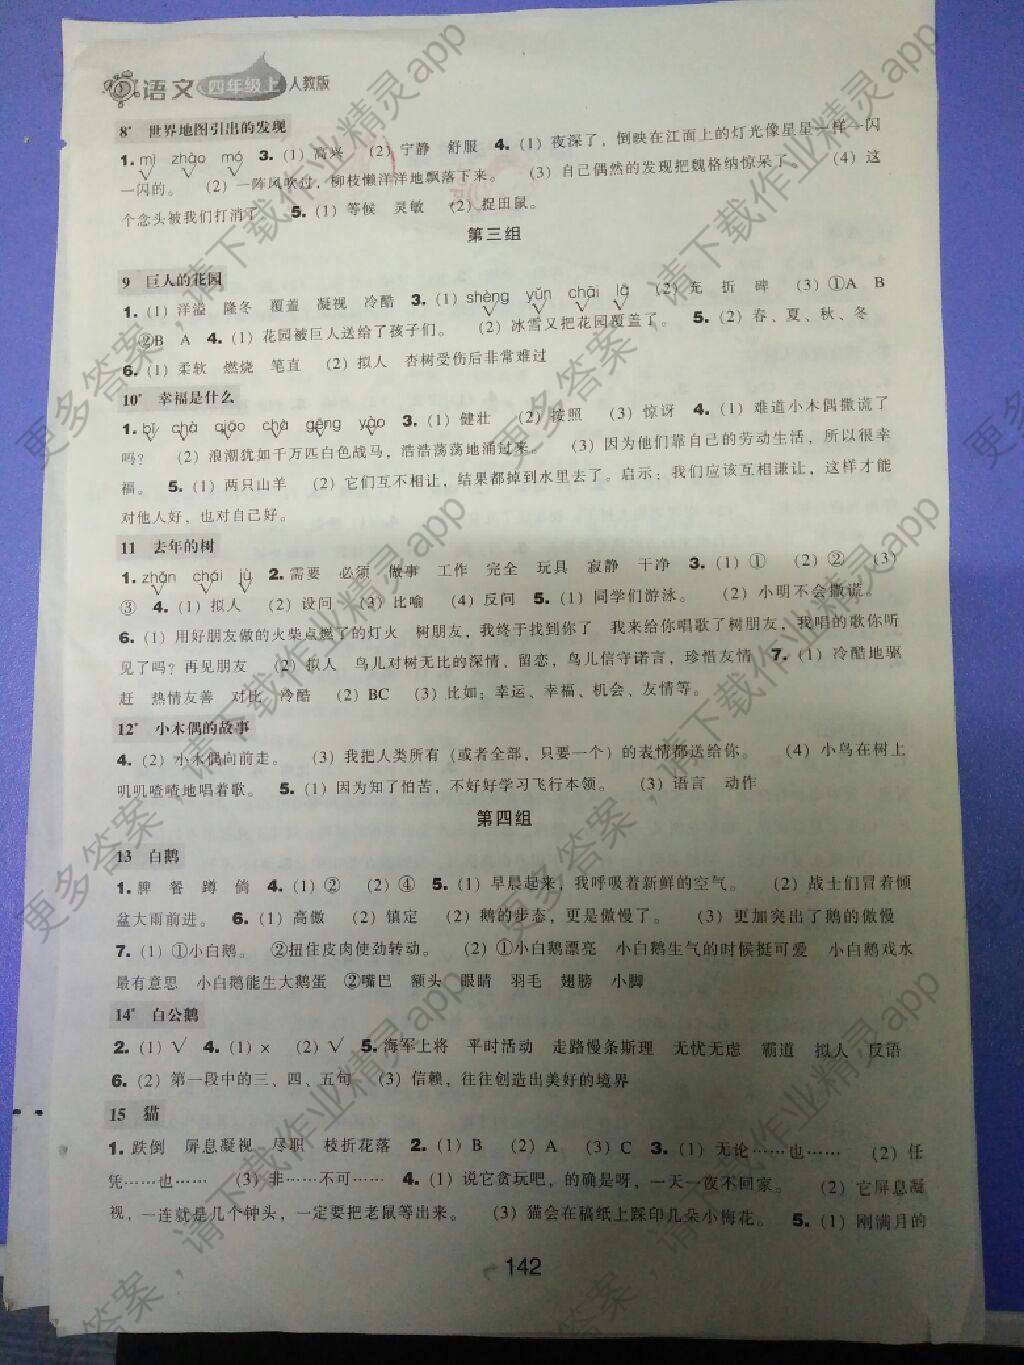 语文 四年级上 人教版
8* 世界地图引出的发现
1. mì zhào mó 3. (1) 高兴 (2) 宁静 舒服 4. (1) 夜深了，倒映在江面上的灯光像星星一样一闪
一闪的。 (2) 一阵风吹过，柳枝懒洋洋地飘落下来。 (3) 自己偶然的发现把魏格纳惊呆了。 (4) 这
个念头被我们打消了 5. (1) 等候 灵敏 (2) 捉田鼠。
第三组
9 巨人的花园
1. (1) 洋溢 隆冬 覆盖 凝视 冷酷 3. (1) shèng yǔn chāi là (2) 充 折 碑 (3) ①A B
②B A 4. (1) 花园被巨人送给了孩子们。 (2) 冰雪又把花园覆盖了。 5. (2) 春、夏、秋、冬
6. (1) 柔软 燃烧 笔直 (2) 拟人 杏树受伤后非常难过
10* 幸福是什么
1. bǐ chà qiáo chà gēng yào 3. (1) 健壮 (2) 按照 (3) 惊讶 4. (1) 难道小木偶撒谎了
吗？ (2) 浪潮犹如千万匹白色战马，浩浩荡荡地涌过来。 (3) 因为他们靠自己的劳动生活，所以很幸
福。 5. (1) 两只山羊 (2) 它们互不相让，结果都掉到水里去了。启示：我们应该互相谦让，这样才能
对他人好，也对自己好。
11 去年的树
1. zhǎn chái jù 2. 需要 必须 做事 工作 完全 玩具 寂静 干净 3. (1) ① (2) ② (3)
③ 4. (1) 拟人 (2) 设问 (3) 比喻 (4) 反问 5. (1) 同学们游泳。 (2) 小明不会撒谎。
6. (1) 用好朋友做的火柴点燃了的灯火 树朋友，我终于找到你了 我来给你唱歌了树朋友，我唱的歌你听
见了吗？再见朋友 (2) 拟人 鸟儿对树无比的深情，留恋，鸟儿信守诺言，珍惜友情 7. (1) 冷酷地驱
赶 热情友善 对比 冷酷 (2) BC (3) 比如：幸运、幸福、机会、友情等。
12* 小木偶的故事
4. (2) 小木偶向前走。 (3) 我把人类所有（或者全部，只要一个）的表情都送给你。 (4) 小鸟在树上
叽叽喳喳地唱着歌。 5. (1) 因为知了怕苦，不好好学习飞行本领。 (3) 语言 动作
第四组
13 白鹅
1. 脾 餐 蹲 倘 4. (1) ② (2) ④ 5. (1) 早晨起来，我呼吸着新鲜的空气。 (2) 战士们冒着倾
盆大雨前进。 6. (1) 高傲 (2) 镇定 (2) 鹅的步态，更是傲慢了。 (3) 更加突出了鹅的傲慢
7. (1) ①小白鹅。 ②扭住皮肉使劲转动。 (2) ①小白鹅漂亮 小白鹅生气的时候挺可爱 小白鹅戏水
最有意思 小白鹅能生大鹅蛋 ②嘴巴 额头 眼睛 羽毛 翅膀 小脚
14* 白公鹅
2. (1) √ 4. (1) × (2) √ 5. 海军上将 平时活动 走路慢条斯理 无忧无虑 霸道 拟人 反语
6. (2) 第一段中的三、四、五句 (3) 信赖，往往创造出美好的境界
15 猫
1. 跌倒 屏息凝视 尽职 枝折花落 2. (1) B (2) A (3) C 3. (1) 无论……也…… (2) 任
凭……也…… (3) 非……不可…… 4. (1) 说它贪玩吧，的确是呀，一天一夜不回家。 (2) 它屏息凝
视，一连就是几个钟头，一定要把老鼠等出来。 (3) 猫会在稿纸上踩印几朵小梅花。 5. (1) 刚满月的
142
更多答案，请下载作业精灵app